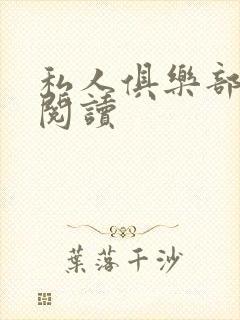 私人俱樂部
閱讀
葉落千沙